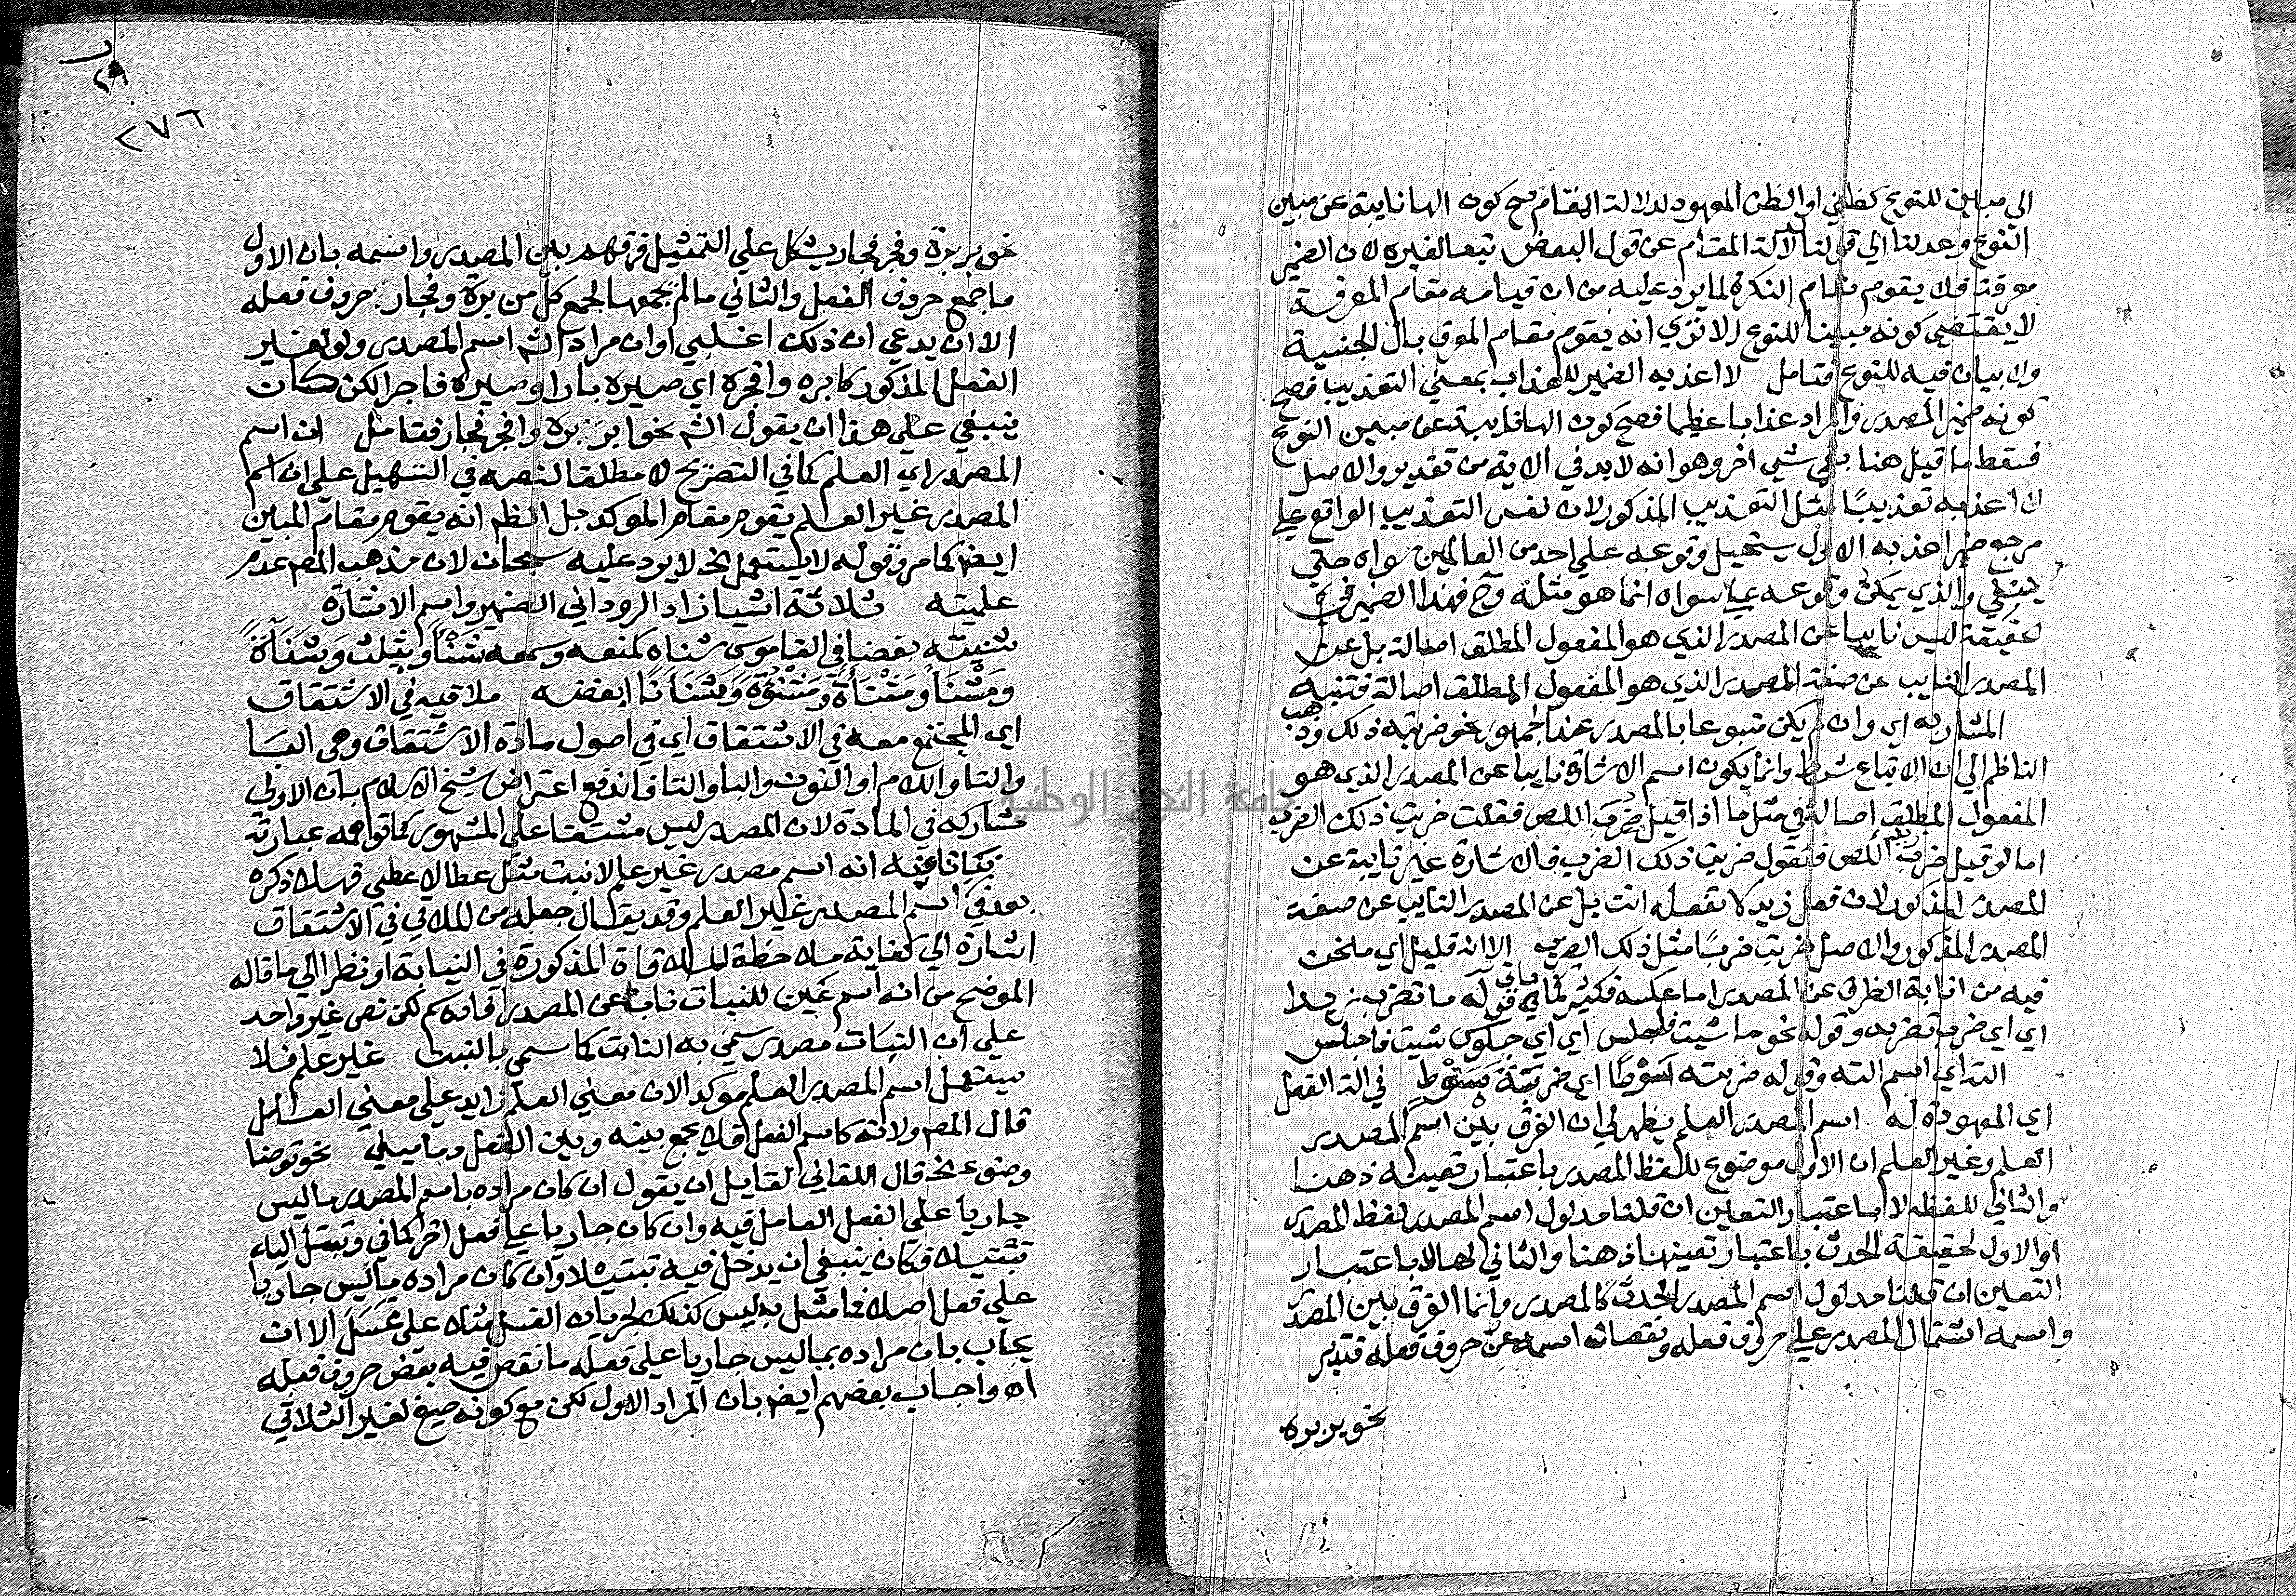 الى مبين للنوع كظني او الظن المعهود لدلالة المقام مع كون الها نايبة عن مبين
النوع وعدلنا الي قولنا لدلالة المقام عن قول البعض تبعا لغيره لان الضمير
معرفة فلا يقوم مقام النكرة لما يرد عليه من ان قيامه مقام المعرفة
لا يقتضي كونه مبينا للنوع الا تري انه يقوم مقام المعرف بال الجنسية
ولا بيان فيه للنوع فتامل لا اعذبه الضمير للعذاب بمعني التعذيب فصح
كونه ضمير المصدر والمراد عذابا عظيما فصح كون الها نايبة عن مبين النوع
فسقط ما قيل هنا بقي شي اخر وهو انه لا بد في الاية من تقدير والاصل
لا اعذبه تعذيبًا مثل التعذيب المذكور لان نفس التعذيب الواقع علي
مرجع ضمير اعذبه الاول يستحيل وقوعه علي احد من العالمين سواه حتي
ينفي والذي يمكن وقوعه علي سواه انما هو مثله وح فهذا الضمير في
حقيقة ليس نايبا عن المصدر الذي هو المفعول المطلق اصالة بل عن
المصدر النايب عن صفة المصدر الذي هو المفعول المطلق اصالة فتنبه
المشار به اي وان لم يكن متبوعا بالمصدر عند الجمهور نحو ضربته ذلك وذهب
الناظم الي ان الاتباع شرط وانما يكون اسم الاشارة نايبا عن المصدر الذي هو
المفعول المطلق اصالة في مثل ما اذا قيل ضرب اللص فقلت ضربت ذلك الضرب
اما لو قيل ضرب زيد اللص فتقول ضربت ذلك الضرب فالاشارة غير نايبة عن
المصدر المذكور لان فعل زيد لا تفعله انت بل عن المصدر النايب عن صفة
المصدر المذكور والاصل ضربت ضربًا مثل ذلك الضرب الا انه قليل اي ما نحن
فيه من انابة الظرف عن المصدر اما عكسه فكثير كما ياتي في قوله ما تضرب زيدا
اي اي ضرب تضربه وقوله نحو ما شيت فاجلس اي اي جلوس شيت فاجلس
الته اي اسم الته وقوله ضربته سَوْطًا اي ضربته بسوط في الة الفعل
اي المعهودة له اسم المصدر العلم يظهر لي ان الفرق بين اسم المصدر
العلم وغير العلم ان الاول موضوع للفظ المصدر باعتبار تعينه ذهنا
والثاني للفظه لا باعتبار التعين ان قلنا مدلول اسم المصدر لفظ المصدر
او الاول لحقيقة الحدث باعتبار تعينها ذهنا والثاني لها لا باعتبار
التعين ان قلنا مدلول اسم المصدر الحدث كالمصدر وانما الفرق بين المصدر
واسمه اشتمال المصدر علي حروف فعله ونقصان اسمه عن حروف فعله فتدبر
نحو بر بره
٢٧٦
نحو بر برة وفجر فجار يشكل علي التمثيل فرقهم بين المصدر واسمه بان الاول
ما جمع حروف الفعل والثاني ما لم يجمعها لجمع كل من برة وفجار حروف فعله
الا ان يدعي ان ذلك اغلبي او ان مراد الش اسم المصدر ولو لغير
الفعل المذكور كابره وافجره اي صيره بارا وصيره فاجرا لكن كان
ينبغي علي هذا ان يقول الش نحو ابر برة وافجر فجار فتامل ان اسم
المصدر اي العلم كما في التصريح لا مطلقا لنصه في التسهيل علي ان اسم
المصدر غير العلم يقوم مقام الموكد بل الظم انه يقوم مقام المبين
ايض كما مر وقوله لا يستعمل الخ لا يرد عليه سبحان لان مذهب المص عدم
علميته ثلاثة اشيا زاد الرود اني الضمير واسم الاشارة
شنيته بغضا في القاموس شناه كمنعه وسمعه شَنْأً ويثلث وَشَنَأَةً
ومَشْنَأً ومَشْنَأَةً ومَشْنُؤَةً وَشَنَآنًا ابغضه ملاقيه في الاشتقاق
اي المجتمع معه في الاشتقاق اي في اصول مادة الاشتقاق وهي البا
والتا واللام او النون والبا والتا فاندفع اعتراض شيخ الاسلام بان الاولي
مشاركه في المادة لان المصدر ليس مشتقا علي المشهور كما توهمه عبارته
نباتا فيه انه اسم مصدر غير علم لانبت مثل عطا لا عطي فهلا ذكره
بعد في اسم المصدر غير العلم وقد يقال جعله من الملاقي في الاشتقاق
اشارة الي كفاية ملاحظة الملاقاة المذكورة في النيابة او نظرا الي ما قاله
الموضح من انه اسم عين للنبات ناب عن المصدر فافهم لكن نص غير واحد
علي ان النبات مصدر سمي به النابت كما سمي بالنبت غير علم فلا
يستعمل اسم المصدر العلم موكدا لان معني العلم زايد علي معني العامل
قال المص ولانه كاسم الفعل فلا يجمع بينه وبين الفعل وما سيلي نحو توضا
وضوء الخ قال اللقاني لقايل ان يقول ان كان مراده باسم المصدر ما ليس
جاريا علي الفعل العامل فيه وان كان جاريا علي فعل اخر كما في وتبتل اليه
تبتيلا فكان ينبغي ان يدخل فيه تبتيلا وان كان مراده ما ليس جاريا
علي فعل اصلا فما مثل به ليس كذلك لجريان الغسل مثلا علي غَسَلَ الا ان
يجاب بان مراده بما ليس جاريا علي فعله ما نقص فيه بعض حروف فعله
اه واجاب بعضهم ايض بان المراد الاول لكن مع كونه صيغ لغير الثلاثي
جامعة النجاح الوطنية